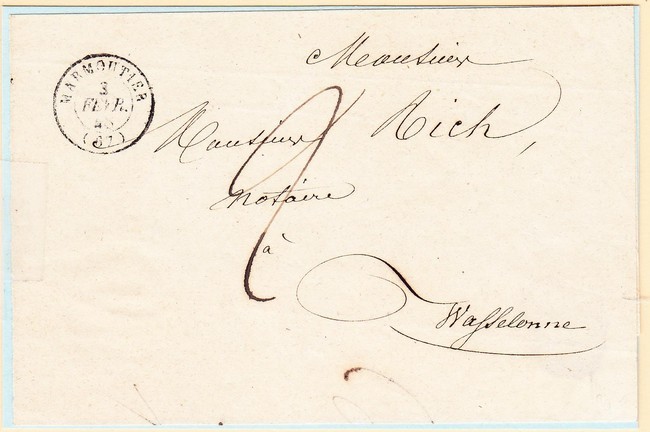 MARMOUTIER
3
FEVR.
(67)
Monsieur
Monsieur Rich,
notaire
à
Wasselonne
2